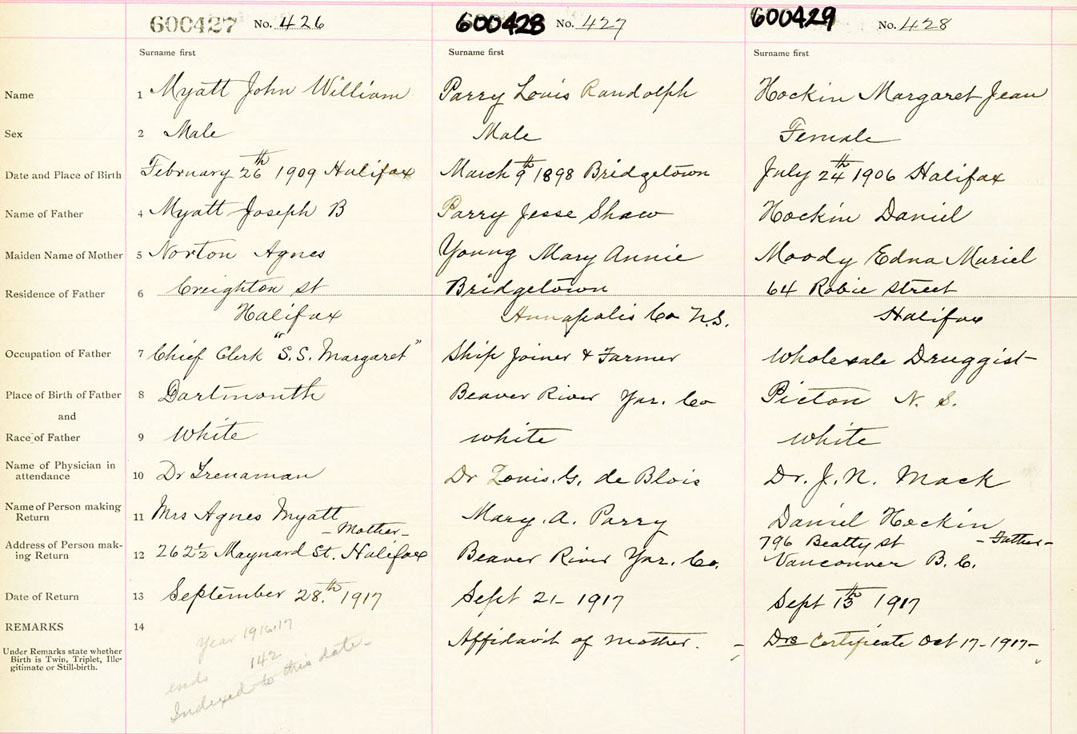 600427 No. 426 600428 No. 427 600429 No. 428
Surname first Surname first Surname first
Name 1 Myatt John William Parry Louis Randolph Hockin Margaret Jean
Sex 2 Male Male Female
Date and Place of Birth 3 February 26th 1909 Halifax March 9th 1898 Bridgetown July 24th 1906 Halifax
Name of Father 4 Myatt Joseph B Parry Jesse Shaw Hockin Daniel
Maiden Name of Mother 5 Norton Agnes Young Mary Annie Moody Edna Muriel
Residence of Father 6 Creighton st Bridgetown 64 Robie Street
Halifax Annapolis Co N.S. Halifax
Occupation of Father 7 Chief Clerk "S.S. Margaret" Ship Joiner & Farmer Wholesale Druggist
Place of Birth of Father 8 Dartmouth Beaver River Yar. Co Picton N. S.
and
Race of Father 9 White white white
Name of Physician in attendance 10 Dr Trenaman Dr Louis. G. de Blois Dr. J. N. Mack
Name of Person making Return 11 Mrs Agnes Myatt Mary. A. Parry Daniel Hockin
- Mother - - Father -
Address of Person making Return 12 262½ Maynard St. Halifax Beaver River Yar. Co. 796 Beatty st
Vancouver B. C.
Date of Return 13 September 28th 1917 Sept 21 - 1917 Sept 13th 1917
REMARKS 14 Affidavit of mother. Drs Certificate Oct 17 - 1917 -
Under Remarks state whether
Birth is Twin, Triplet, Ille-
gitimate or Still-birth.
Year 1916-17
ends 142
Indexed to this date -